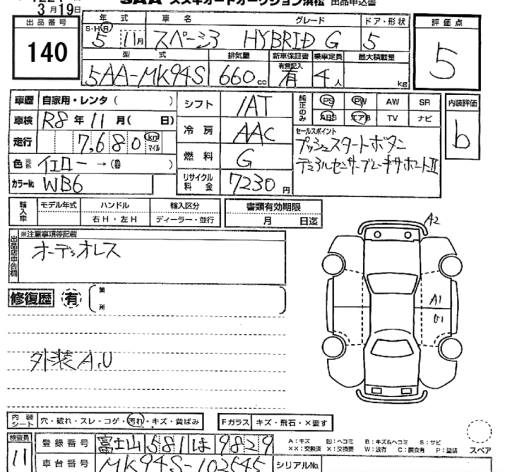 3月19日 SAA スズキオートオークション浜松 出品申込書
出品番号 140
年式 車名 グレード ドア・形状 評価点
S・H・R 5 11月 スペーシア HYBRID G 5 5
型式 排気量 新車保証書 乗車定員 最大積載量
5AA-MK94S 660cc 有 4人 kg
車歴 自家用・レンタ( ) シフト IAT PS PW AW SR 内装評価
車検 R8年11月( 日) ABS エアB TV ナビ b
冷房 AAC セールスポイント
走行 7,680 km マイル プッシュスタートボタン
色 イエロー→( ) 燃料 G デュアルセンサーブレーキサポートII
カラーNo. WB6 リサイクル料金 7230円
輸入車 モデル年式 ハンドル 輸入区分 書類有効期限
右H・左H ディーラー・並行 月 日迄
※注意事項等記載
オーディオレス
A2
修復歴 有 箇所
A1
U1
外装A,U
内装シート 穴・破れ・スレ・コゲ・汚れ・キズ・黄ばみ Fガラス キズ・飛石・×要す
検査員 11 登録番号 富士山581は9829
A:キズ U:ヘコミ B:キズ&ヘコミ S:サビ
XX:交換済 X:交換要 W:波有 C:腐食有 P:塗装 スペア
車台番号 MK94S-102645 シリアルNo.